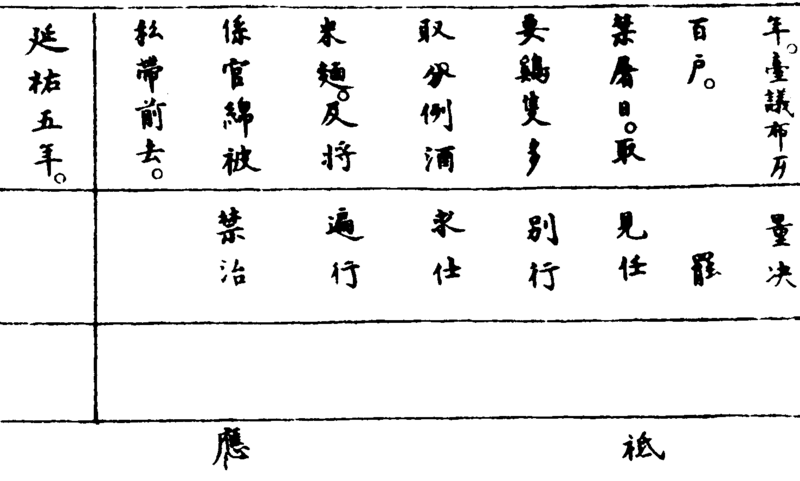 年。臺議布万
百户。
禁屠日。取
要鷄隻多
取分例酒
米麵。反将
係官綿被
帶前去。
量决
罷
見任
别行
求仕
遍行
禁治
延祐五年。
祗應